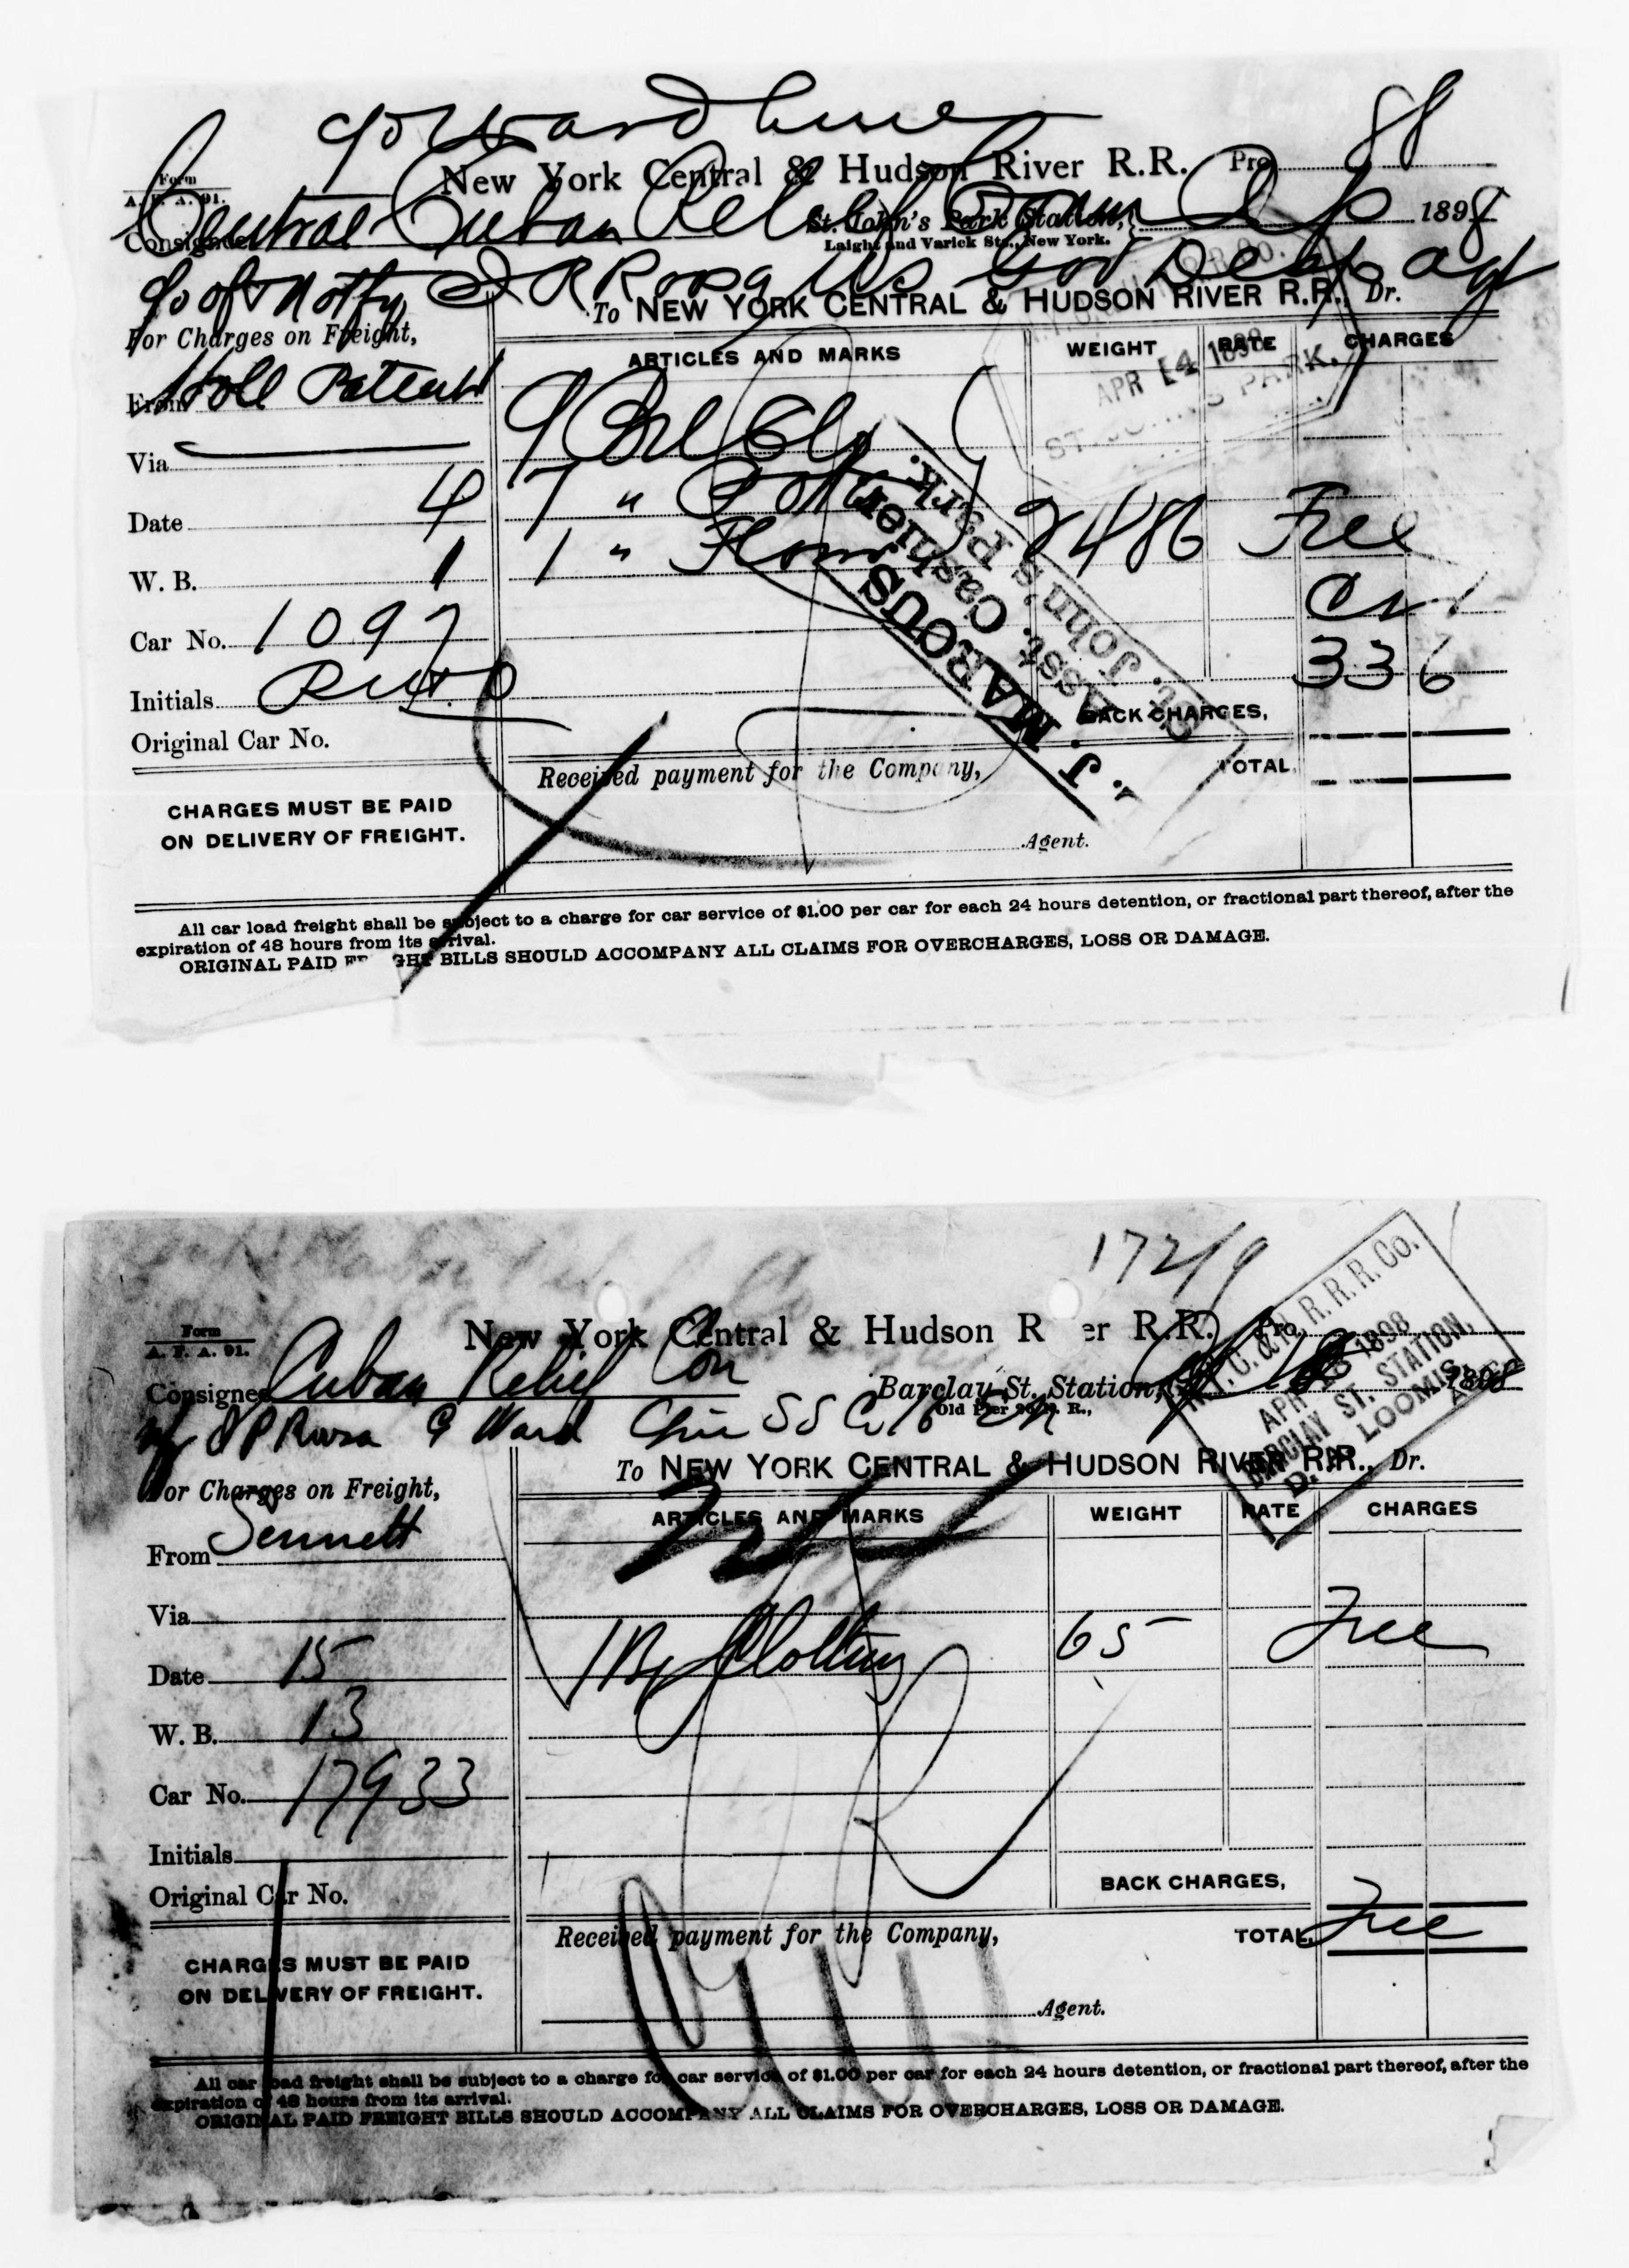 c/o Ward Line
88
Form
A. F. A. 91.
New York Central & Hudson River R.R. Pro
Central Cuban Relief Com
St. John's Park Station,
1898
Consignee
Laight and Varick Sts., New York.
To NEW YORK CENTRAL & HUDSON RIVER R.R., Dr.
For Charges on Freight,
ARTICLES AND MARKS WEIGHT RATE CHARGES
APR 14 1898
From
Via
7 " 
Date 4
2486 Free
W. B. 1
1 " Flour
Car No. 1097
336
Initials
BACK CHARGES,
Original Car No.
J. MARCUS
Asst. Cashier
St. John's Park.
Received payment for the Company,
TOTAL,
CHARGES MUST BE PAID
ON DELIVERY OF FREIGHT.
Agent.
All car load freight shall be subject to a charge for car service of $1.00 per car for each 24 hours detention, or fractional part thereof, after the
expiration of 48 hours from its arrival.
ORIGINAL PAID FR GHT BILLS SHOULD ACCOMPANY ALL CLAIMS FOR OVERCHARGES, LOSS OR DAMAGE.
172/9
Form
A. F. A. 91.
New York Central & Hudson R er R.R. Pro.
N. Y. C. & H. R. R. R. Co.
APR 1898
BARCLAY ST. STATION,
D. LOOMIS,
Consignee Cuban Relief Com
Barclay St. Station,
1898
Old Pier
Ward Line S S Co
To NEW YORK CENTRAL & HUDSON RIVER R.R., Dr.
For Charges on Freight,
ARTICLES AND MARKS WEIGHT RATE CHARGES
From Sennett
Via
1 Bx Clothing 65 Free
Date 15
W. B. 13
Car No. 17933
Initials
BACK CHARGES,
Original Car No.
Received payment for the Company,
TOTAL, Free
CHARGES MUST BE PAID
ON DELIVERY OF FREIGHT.
Agent.
All car load freight shall be subject to a charge for car service of $1.00 per car for each 24 hours detention, or fractional part thereof, after the
expiration of 48 hours from its arrival.
ORIGINAL PAID FREIGHT BILLS SHOULD ACCOMPANY ALL CLAIMS FOR OVERCHARGES, LOSS OR DAMAGE.